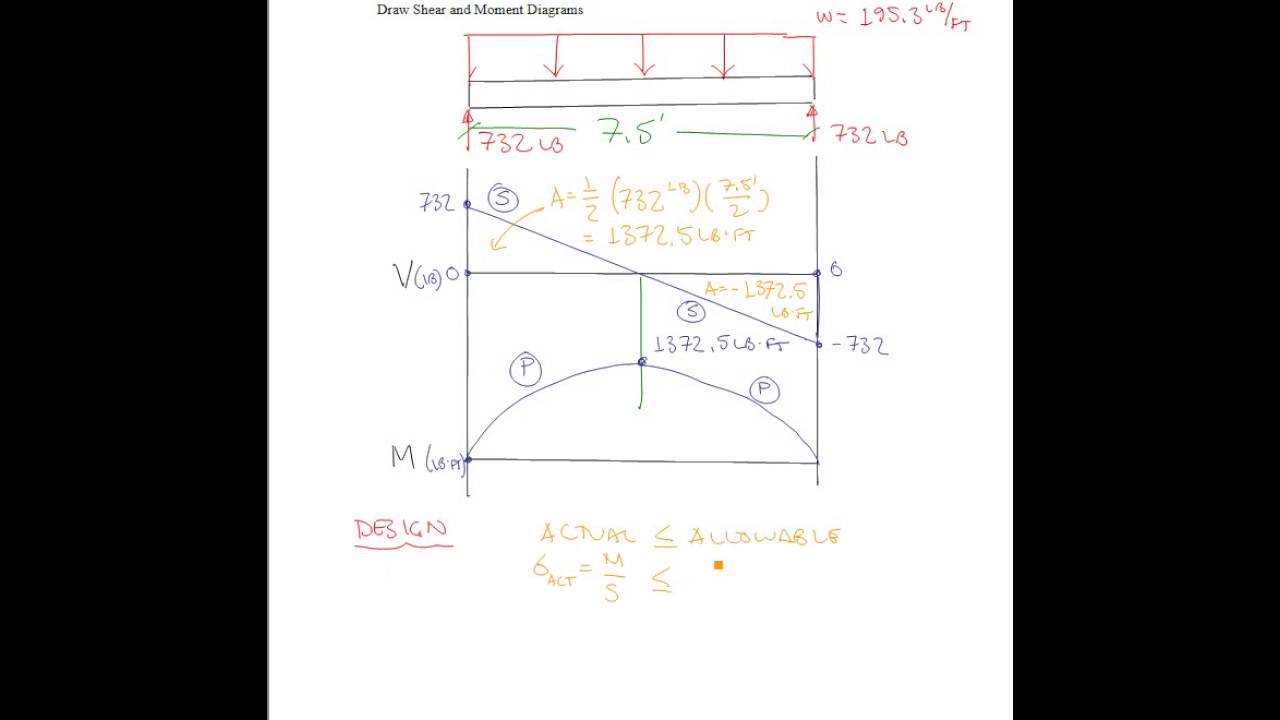 Draw Shear and Moment Diagrams
W = 195.3 LB/FT
7.5'
732 LB
732 LB
732
S
A = 1/2 (732 LB)(7.5'/2)
= 1372.5 LB·FT
V (LB) 0
0
A = -1372.5
LB·FT
S
1372.5 LB·FT
-732
P
P
M (LB·FT)
DESIGN
ACTUAL ≤ ALLOWABLE
σACT = M/S ≤